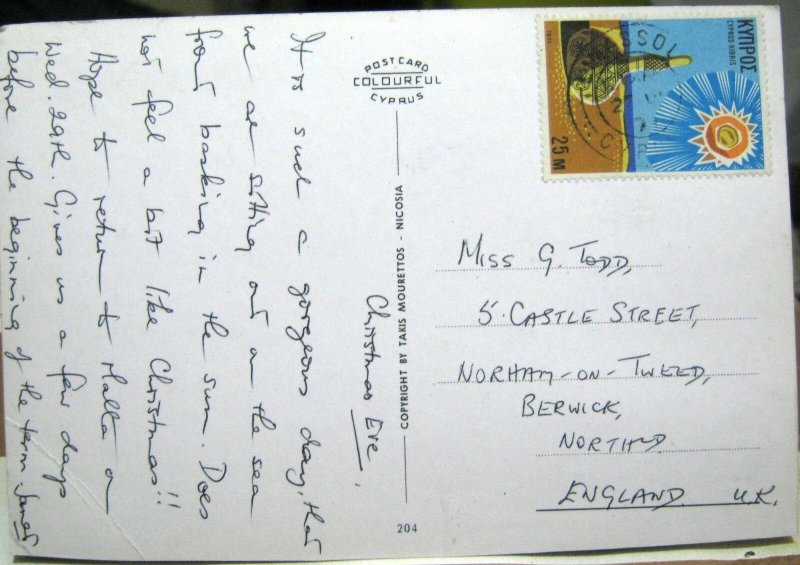 Christmas Eve.
It is such a gorgeous day, that
we are sitting out on the sea
front basking in the sun. Does
not feel a bit like Christmas!!
Hope to return to Malta on
Wed. 29th. Gives us a few days
before the beginning of the term. Janet
POST CARD
COLOURFUL
CYPRUS
COPYRIGHT BY TAKIS MOURETTOS - NICOSIA
204
ΚΥΠΡΟΣ
CYPRUS KIBRIS
1971
25 M
MISS G. TODD,
5. CASTLE STREET,
NORHAM-ON-TWEED,
BERWICK,
NORTH'D.
ENGLAND. U.K.